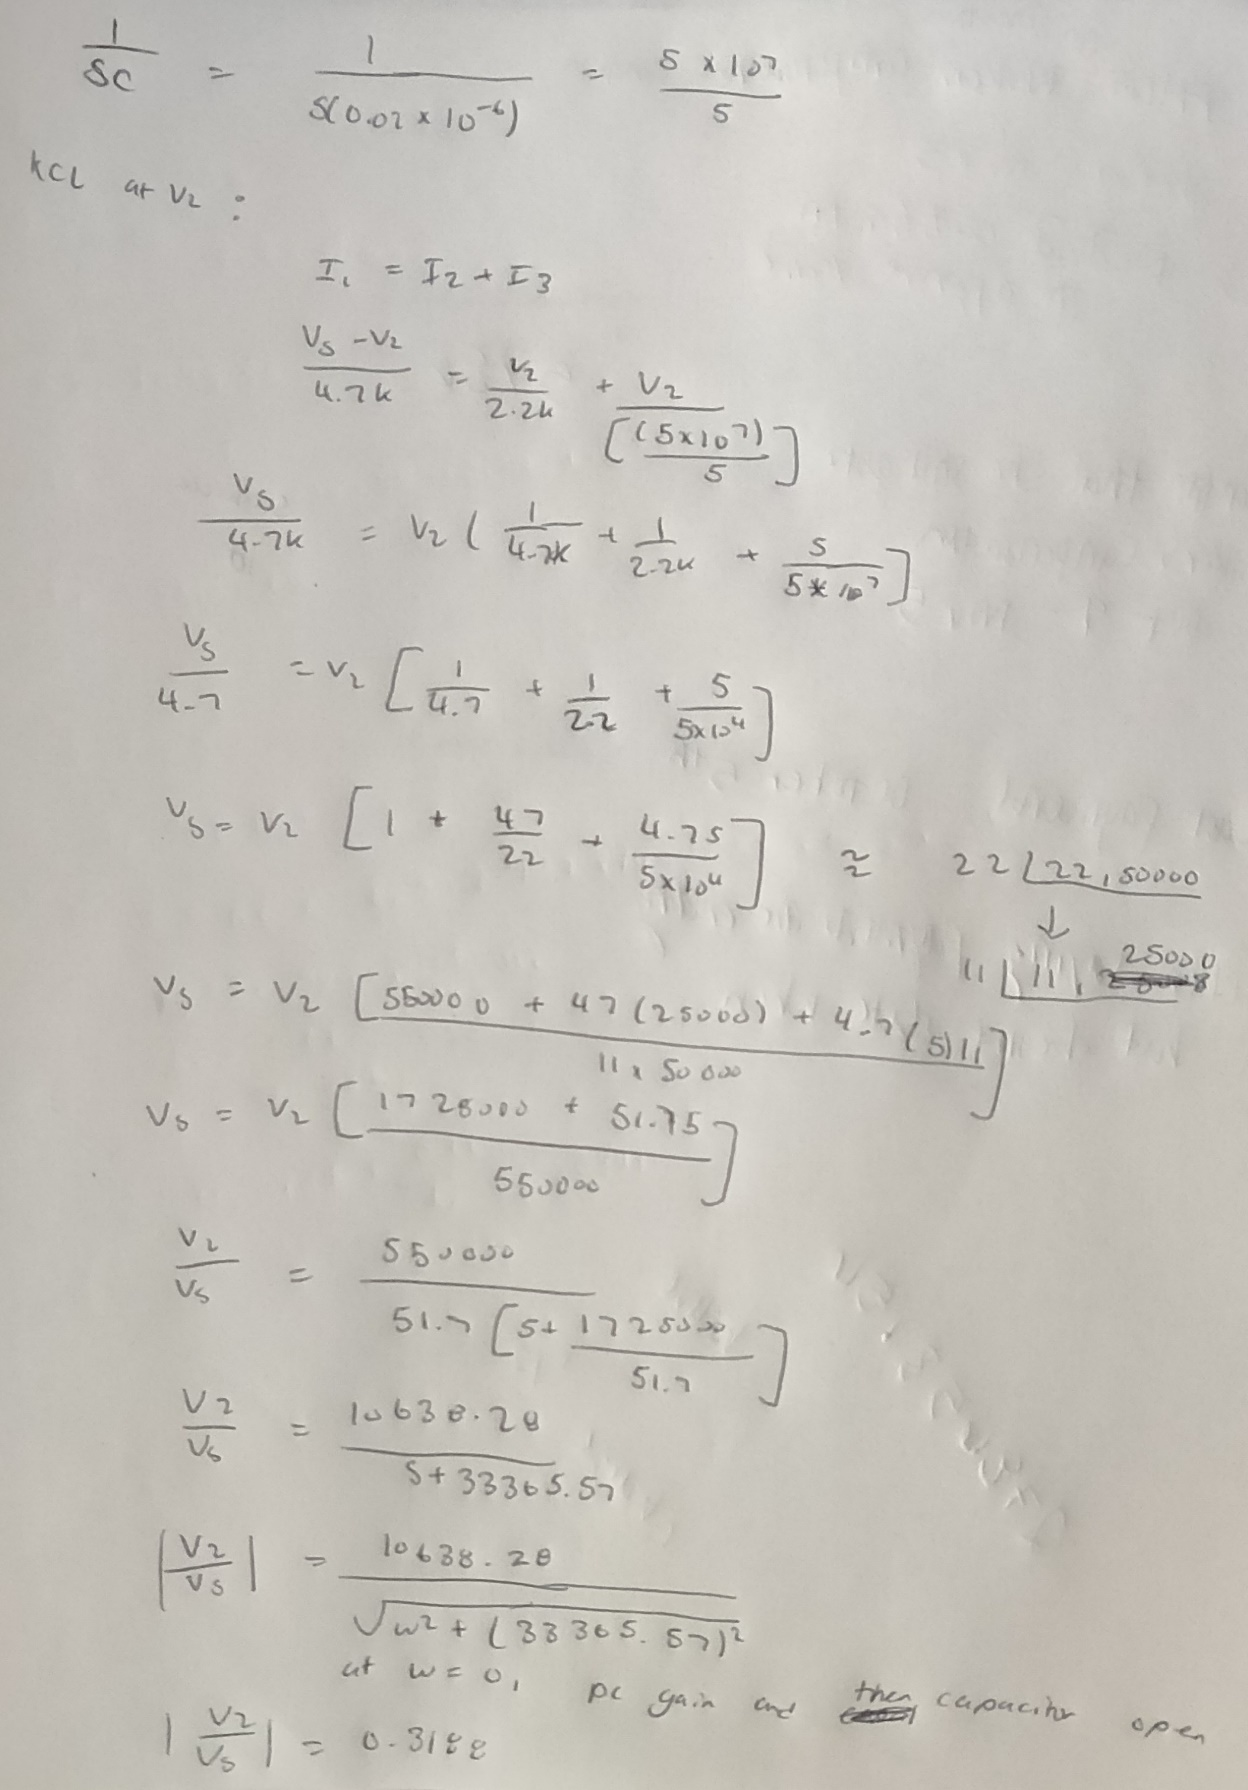 1/SC = 1/S(0.02 x 10^-6) = 5 x 10^7/S
KCL at V2 :
I1 = I2 + I3
Vs - V2/4.7k = V2/2.2k + V2/[(5x10^7)/S]
Vs/4.7k = V2 ( 1/4.7k + 1/2.2k + S/5*10^7 ]
Vs/4.7 = V2 [ 1/4.7 + 1/2.2 + S/5x10^4 ]
Vs = V2 [ 1 + 47/22 + 4.7S/5x10^4 ] ≈ 22 | 22, 50000
↓
11 | 11, 25000
Vs = V2 [ 550000 + 47 (25000) + 4.7 (S) 11 / 11 x 50000 ]
Vs = V2 [ 1725000 + 51.7S / 550000 ]
V2/Vs = 550000 / 51.7 [ S + 1725000/51.7 ]
V2/Vs = 10638.28 / S + 33365.57
|V2/Vs| = 10638.28 / √w^2 + (33365.57)^2
at w = 0, DC gain and then capacitor open
|V2/Vs| = 0.3188